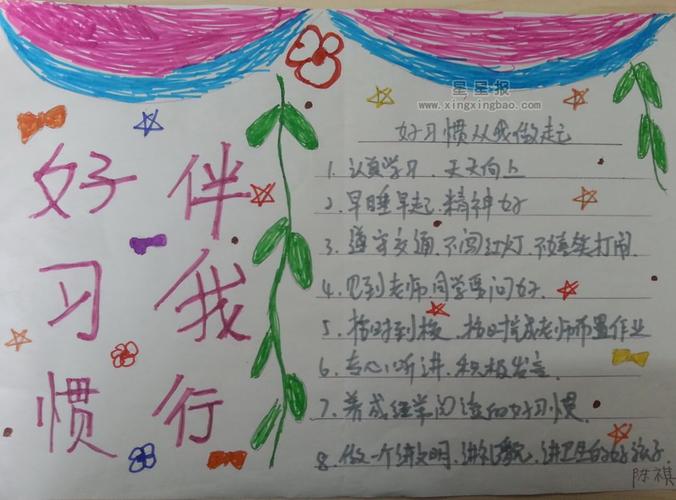 好习惯
伴我行
星星报
www.xingxingbao.com
好习惯从我做起
1. 认真学习、天天向上
2. 早睡早起、精神好
3. 遵守交通、不闯红灯、不嬉笑打闹.
4. 见到老师同学要问好.
5. 按时到校、按时完成老师布置作业
6. 专心听讲、积极发言
7. 养成经常阅读的好习惯.
8. 做一个讲文明、讲礼貌、讲卫生的好孩子.
陈祺